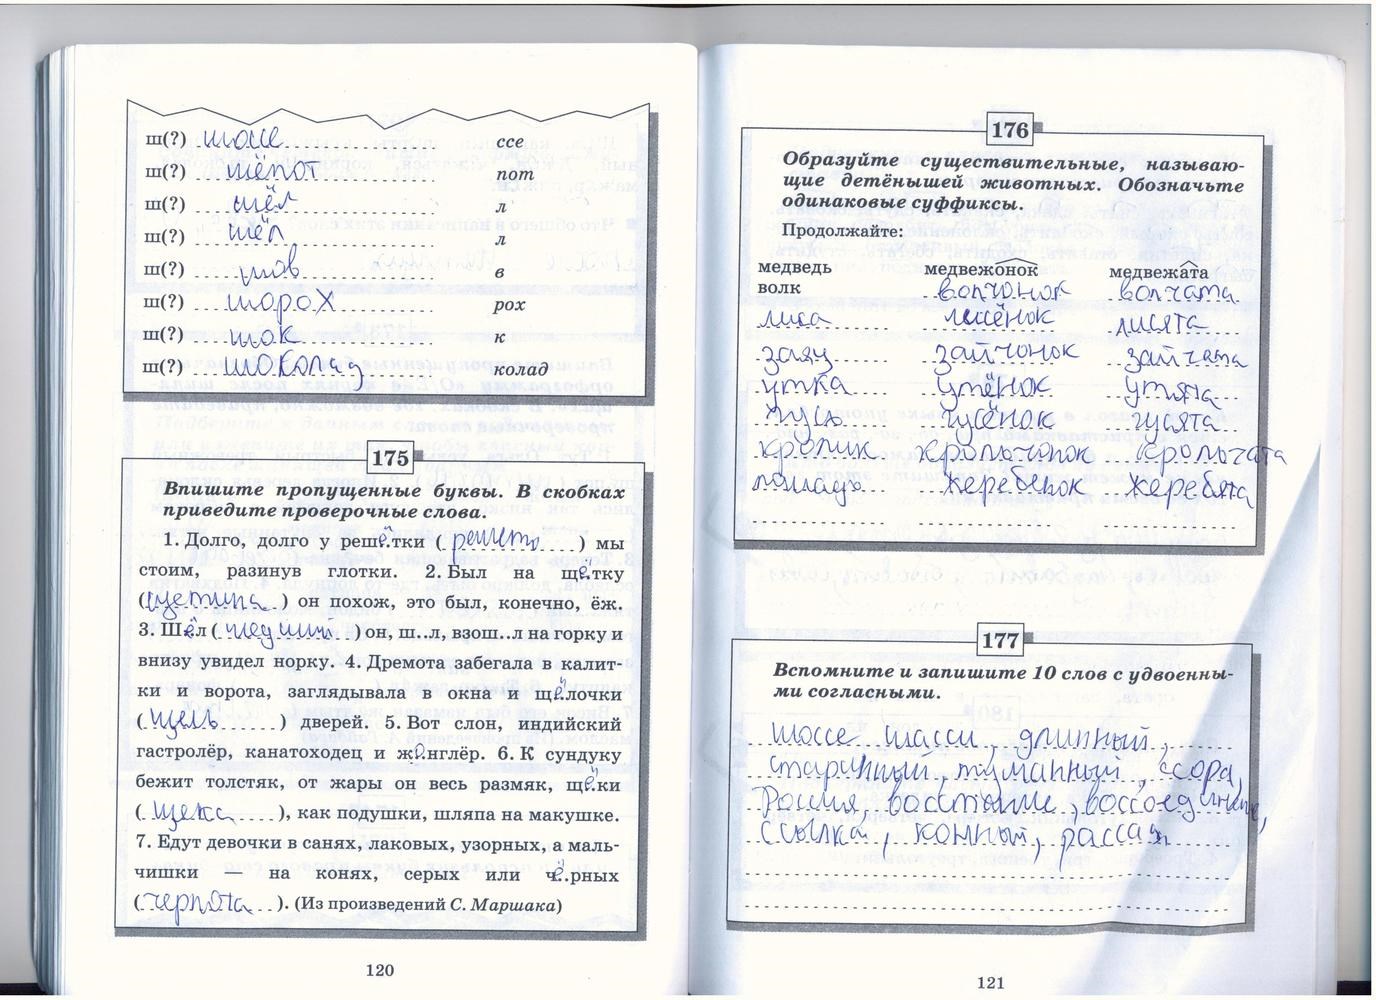 ш(?) шоссе ссе
ш(?) шёпот пот
ш(?) шёл л
ш(?) шёл л
ш(?) шов в
ш(?) шорох рох
ш(?) шок к
ш(?) шоколад колад
175
Впишите пропущенные буквы. В скобках
приведите проверочные слова.
1. Долго, долго у решётки (решето) мы
стоим, разинув глотки. 2. Был на щётку
(щетина) он похож, это был, конечно, ёж.
3. Шёл (шедший) он, ш..л, взош..л на горку и
внизу увидел норку. 4. Дремота забегала в калит-
ки и ворота, заглядывала в окна и щёлочки
(щель) дверей. 5. Вот слон, индийский
гастролёр, канатоходец и жонглёр. 6. К сундуку
бежит толстяк, от жары он весь размяк, щёки
(щека), как подушки, шляпа на макушке.
7. Едут девочки в санях, лаковых, узорных, а маль-
чишки — на конях, серых или чёрных
(чернота). (Из произведений С. Маршака)
120
176
Образуйте существительные, называю-
щие детёнышей животных. Обозначьте
одинаковые суффиксы.
Продолжайте:
медведь медвежонок медвежата
волк волчонок волчата
лиса лисёнок лисята
заяц зайчонок зайчата
утка утёнок утята
гусь гусёнок гусята
кролик крольчонок крольчата
лошадь жеребёнок жеребята
177
Вспомните и запишите 10 слов с удвоенны-
ми согласными.
шоссе шасси, длинный,
старинный, туманный, ссора,
Россия, восстание, воссоединение,
ссылка, конный, рассад
121